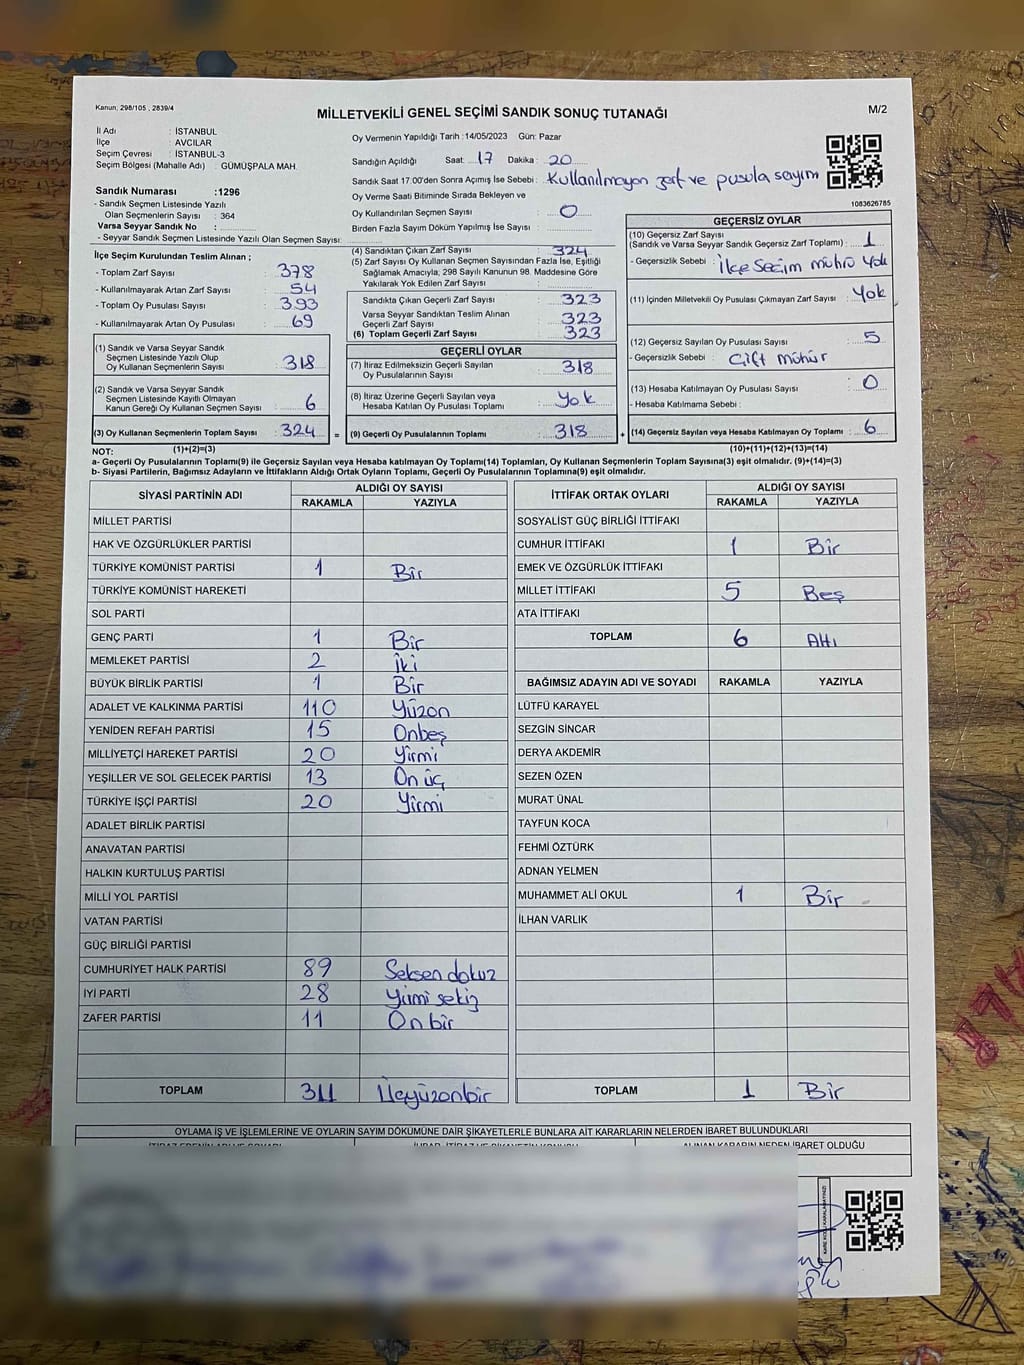 Kanun; 298/105 , 2839/4
MİLLETVEKİLİ GENEL SEÇİMİ SANDIK SONUÇ TUTANAĞI
M/2
İl Adı : İSTANBUL
İlçe : AVCILAR
Seçim Çevresi : İSTANBUL-3
Seçim Bölgesi (Mahalle Adı) : GÜMÜŞPALA MAH.
Sandık Numarası :1296
- Sandık Seçmen Listesinde Yazılı
Olan Seçmenlerin Sayısı : 364
Varsa Seyyar Sandık No :
- Seyyar Sandık Seçmen Listesinde Yazılı Olan Seçmen Sayısı:
Oy Vermenin Yapıldığı Tarih :14/05/2023 Gün: Pazar
Sandığın Açıldığı Saat: 17 Dakika : 20
Sandık Saat 17.00'den Sonra Açımış İse Sebebi : Kullanılmayan zarf ve pusula sayım
Oy Verme Saati Bitiminde Sırada Bekleyen ve
Oy Kullandırılan Seçmen Sayısı : 0
Birden Fazla Sayım Döküm Yapılmış İse Sayısı :
1083626785
İlçe Seçim Kurulundan Teslim Alınan ;
- Toplam Zarf Sayısı : 378
- Kullanılmayarak Artan Zarf Sayısı : 54
- Toplam Oy Pusulası Sayısı : 393
- Kullanılmayarak Artan Oy Pusulası : 69
(1) Sandık ve Varsa Seyyar Sandık
Seçmen Listesinde Yazılı Olup
Oy Kullanan Seçmenlerin Sayısı : 318
(2) Sandık ve Varsa Seyyar Sandık
Seçmen Listesinde Kayıtlı Olmayan
Kanun Gereği Oy Kullanan Seçmen Sayısı : 6
(3) Oy Kullanan Seçmenlerin Toplam Sayısı : 324
(1)+(2)=(3)
(4) Sandıktan Çıkan Zarf Sayısı : 324
(5) Zarf Sayısı Oy Kullanan Seçmen Sayısından Fazla İse, Eşitliği
Sağlamak Amacıyla, 298 Sayılı Kanunun 98. Maddesine Göre
Yakılarak Yok Edilen Zarf Sayısı :
Sandıkta Çıkan Geçerli Zarf Sayısı : 323
Varsa Seyyar Sandıktan Teslim Alınan
Geçerli Zarf Sayısı : 323
(6) Toplam Geçerli Zarf Sayısı : 323
GEÇERLİ OYLAR
(7) İtiraz Edilmeksizin Geçerli Sayılan
Oy Pusulalarının Sayısı : 318
(8) İtiraz Üzerine Geçerli Sayılan veya
Hesaba Katılan Oy Pusulası Toplamı : Yok
= (9) Geçerli Oy Pusulalarının Toplamı : 318 +
GEÇERSİZ OYLAR
(10) Geçersiz Zarf Sayısı
(Sandık ve Varsa Seyyar Sandık Geçersiz Zarf Toplamı) : 1
- Geçersizlik Sebebi : İlçe Seçim mührü Yok
(11) İçinden Milletvekili Oy Pusulası Çıkmayan Zarf Sayısı : Yok
(12) Geçersiz Sayılan Oy Pusulası Sayısı : 5
- Geçersizlik Sebebi : Çift mühür
(13) Hesaba Katılmayan Oy Pusulası Sayısı : 0
- Hesaba Katılmama Sebebi :
(14) Geçersiz Sayılan veya Hesaba Katılmayan Oy Toplamı : 6
(10)+(11)+(12)+(13)=(14)
NOT:
a- Geçerli Oy Pusulalarının Toplamı(9) ile Geçersiz Sayılan veya Hesaba katılmayan Oy Toplamı(14) Toplamları, Oy Kullanan Seçmenlerin Toplam Sayısına(3) eşit olmalıdır. (9)+(14)=(3)
b- Siyasi Partilerin, Bağımsız Adayların ve İttifakların Aldığı Ortak Oyların Toplamı, Geçerli Oy Pusulalarının Toplamına(9) eşit olmalıdır.
SİYASİ PARTİNİN ADI ALDIĞI OY SAYISI
RAKAMLA YAZIYLA
MİLLET PARTİSİ
HAK VE ÖZGÜRLÜKLER PARTİSİ
TÜRKİYE KOMÜNİST PARTİSİ 1 Bir
TÜRKİYE KOMÜNİST HAREKETİ
SOL PARTİ
GENÇ PARTİ 1 Bir
MEMLEKET PARTİSİ 2 İki
BÜYÜK BİRLİK PARTİSİ 1 Bir
ADALET VE KALKINMA PARTİSİ 110 Yüzon
YENİDEN REFAH PARTİSİ 15 Onbeş
MİLLİYETÇİ HAREKET PARTİSİ 20 Yirmi
YEŞİLLER VE SOL GELECEK PARTİSİ 13 On üç
TÜRKİYE İŞÇİ PARTİSİ 20 Yirmi
ADALET BİRLİK PARTİSİ
ANAVATAN PARTİSİ
HALKIN KURTULUŞ PARTİSİ
MİLLİ YOL PARTİSİ
VATAN PARTİSİ
GÜÇ BİRLİĞİ PARTİSİ
CUMHURİYET HALK PARTİSİ 89 Seksen dokuz
İYİ PARTİ 28 Yirmi sekiz
ZAFER PARTİSİ 11 On bir
TOPLAM 311 Üçyüzonbir
İTTİFAK ORTAK OYLARI ALDIĞI OY SAYISI
RAKAMLA YAZIYLA
SOSYALİST GÜÇ BİRLİĞİ İTTİFAKI
CUMHUR İTTİFAKI 1 Bir
EMEK VE ÖZGÜRLÜK İTTİFAKI
MİLLET İTTİFAKI 5 Beş
ATA İTTİFAKI
TOPLAM 6 Altı
BAĞIMSIZ ADAYIN ADI VE SOYADI RAKAMLA YAZIYLA
LÜTFÜ KARAYEL
SEZGİN SİNCAR
DERYA AKDEMİR
SEZEN ÖZEN
MURAT ÜNAL
TAYFUN KOCA
FEHMİ ÖZTÜRK
ADNAN YELMEN
MUHAMMET ALİ OKUL 1 Bir
İLHAN VARLIK
TOPLAM 1 Bir
OYLAMA İŞ VE İŞLEMLERINE VE OYLARIN SAYIM DÖKÜMÜNE DAİR ŞİKAYETLERLE BUNLARA AİT KARARLARIN NELERDEN İBARET BULUNDUKLARI
ALINAN KARARIN NEDEN İBARET OLDUĞU